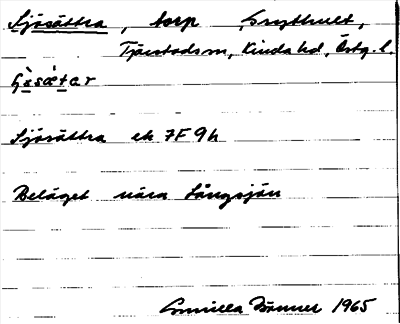 Sjösättra, torp Grythult,
Tjärstads sn, Kinda hd, Östg. l.
Sjösättra ek 7F 9h
Beläget nära Långsjön
Gunilla Bonner 1965